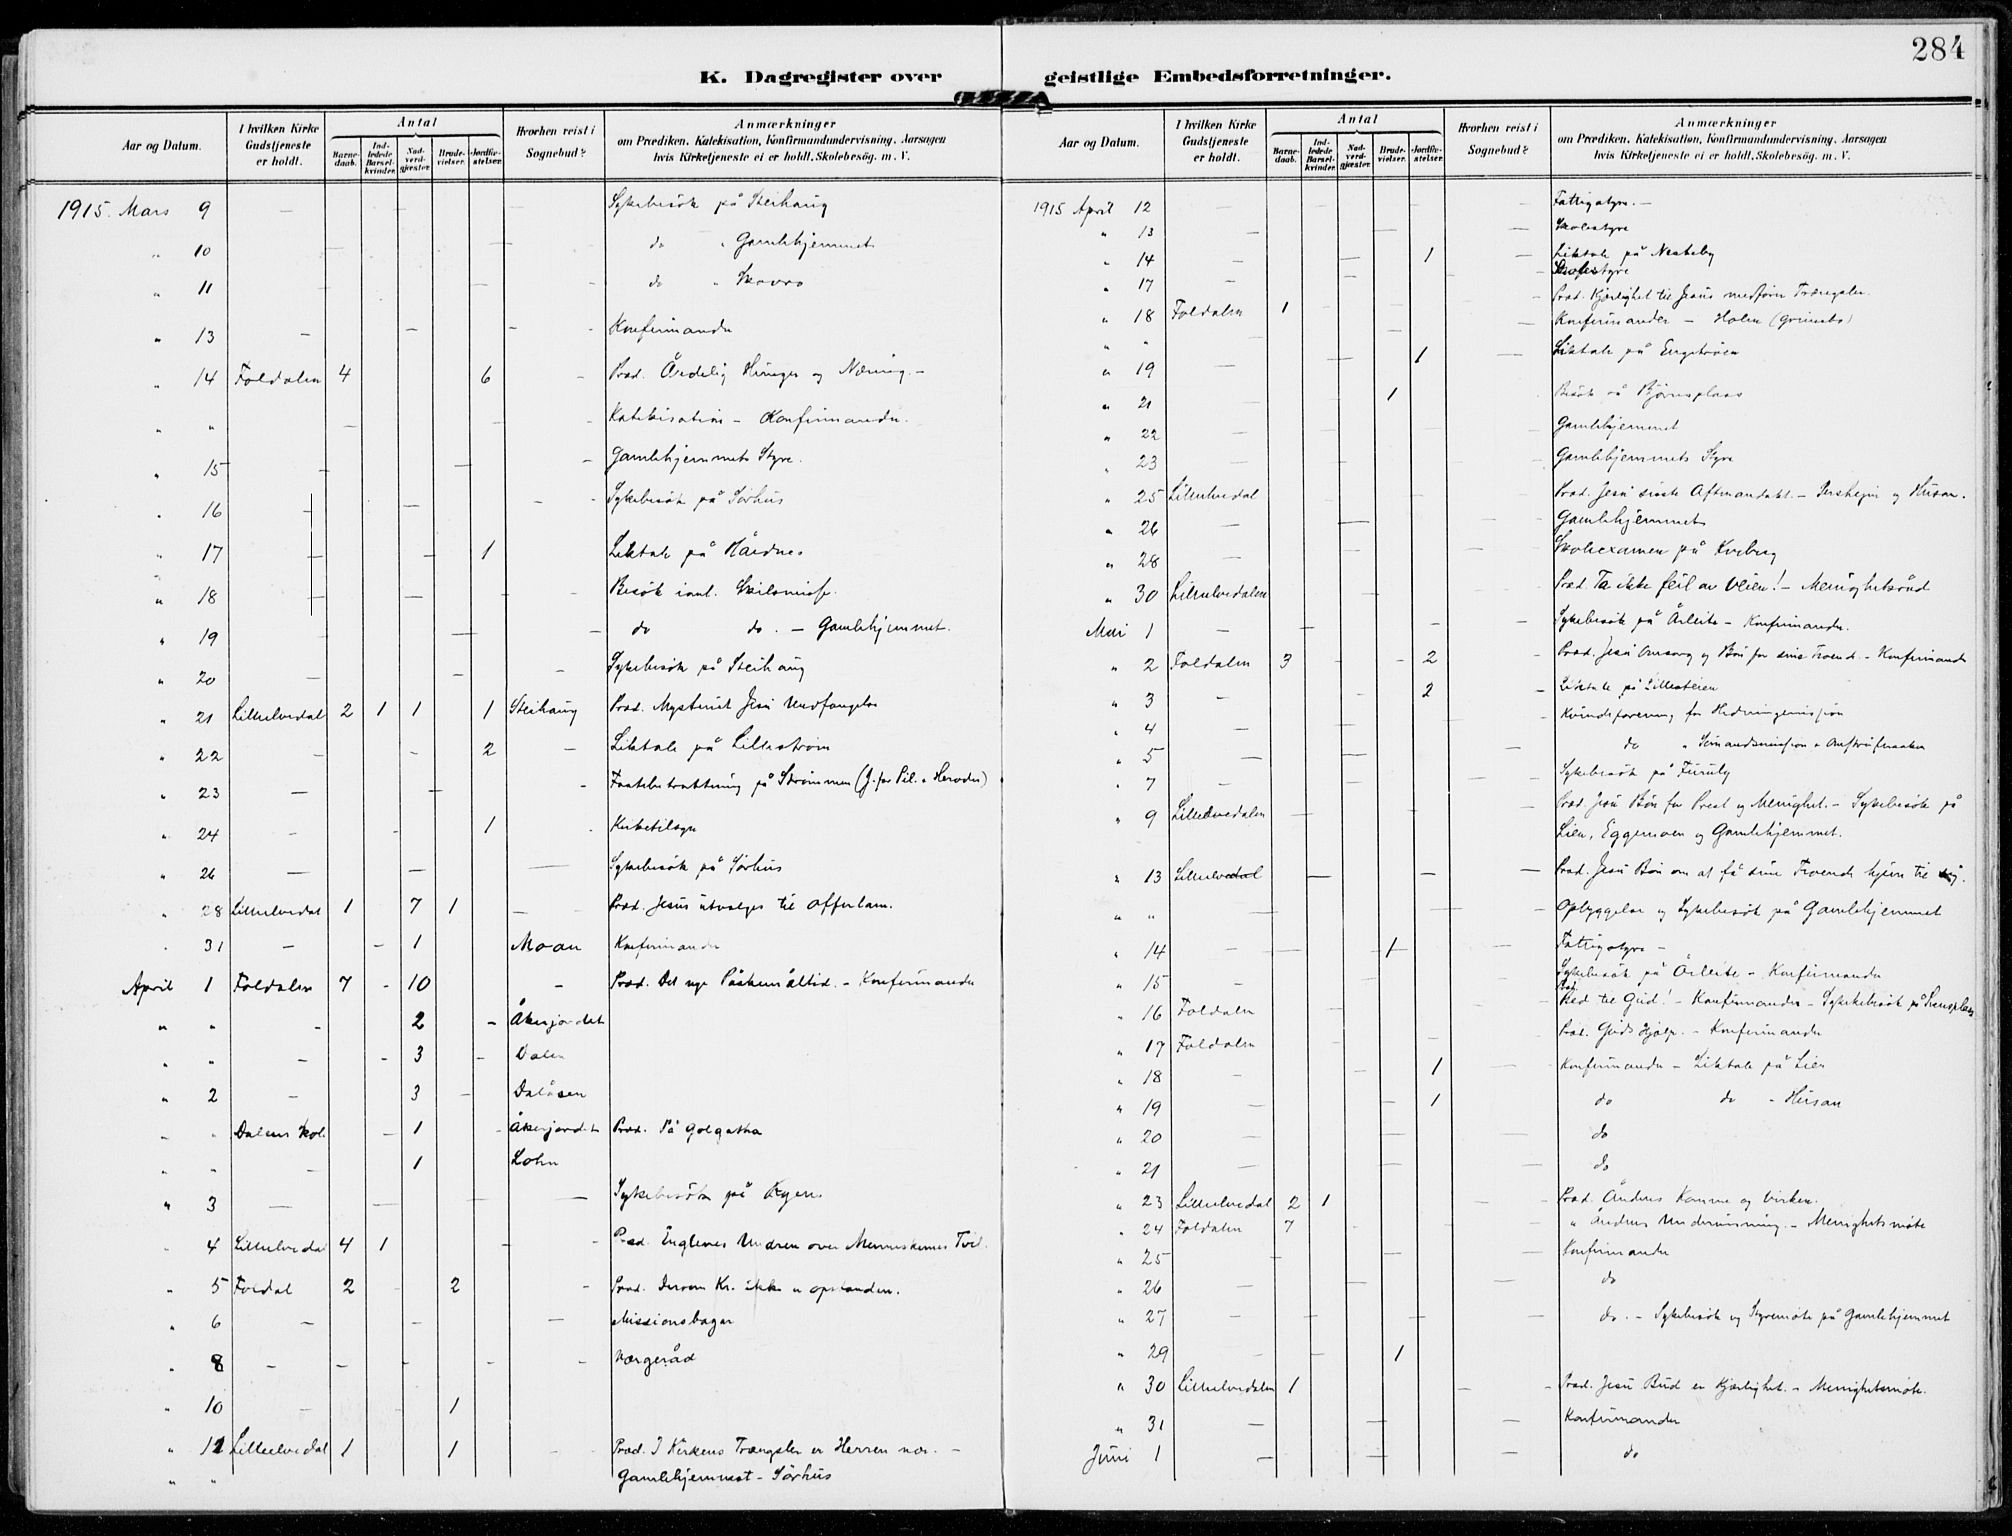 284
K. Dagregister over geistlige Embedsforretninger.
Aar og Datum. I hvilken Kirke Gudstjeneste er holdt. Antal Barnedaab. Indledede Barselkvinder. Nadverdgjæster. Brudevielser. Jordfæstelser. Hvorhen reist i Sognebud? Anmærkninger om Prædiken, Katekisation, Konfirmandundervisning, Aarsagen hvis Kirketjeneste ei er holdt, Skolebesøg. m. V.
1915. Mars 9 — Sykebesök på Steihaug
" 10 — do " Gamlehjemmet
" 11 — do "
" 13 — Konfirmander
" 14 Foldalen 4 6 - Præd. Åndelig Hunger og Næring. -
" " — Katekisation - Konfirmander.
" 15 — Gamlehjemmets Styre.
" 16 — Sykebesök på Sörhus
" 17 — 1 Liktale på
" 18 — Besök
" 19 — do do. - Gamlehjemmet.
" 20 — Sykebesök på Steihaug
" 21 Lilleelvedal 2 1 1 1 Steihaug Præd. Mysteriet Jesu Undfangelse
" 22 — 2 — Liktale på Lilleström
" 23 — på Strömmen (J. for Pil. & Herodes)
" 24 - 1 Kirketilsyn
" 26 — Sykebesök på Sörhus
" 28 Lilleelvedal 1 7 1 — Præd. Jesus utvælges til Offerlam.
" 31 - 1 Moan Konfirmander
April 1 Foldalen 7 - 10 - Præd. Det nye Påskemåltid. - Konfirmander
" " - 2 - Åkerjordet
" " - 3 - Dalen
" 2 - 3 - Dalåsen
" " Dalens Skol. - 1 - Åkerjordet Præd. På Golgatha
" " - 1 Lohn
" 3 — Sykebesök på
" 4 Lilleelvedal 4 1 - Præd. Englenes Undren over Menneskenes Tvil.
" 5 Foldal 2 2 - Præd. Dersom Kr. ikke er opstanden.
" 6 - — Missionsbazar
" 8 - Værgeråd
" 10 - 1
" 11 Lilleelvedal 1 1 - Præd. I Kirkens Trængsler er Herren nær. -
" " Gamlehjemmet - Sörhus
Aar og Datum. I hvilken Kirke Gudstjeneste er holdt. Antal Barnedaab. Indledede Barselkvinder. Nadverdgjæster. Brudevielser. Jordfæstelser. Hvorhen reist i Sognebud? Anmærkninger om Prædiken, Katekisation, Konfirmandundervisning, Aarsagen hvis Kirketjeneste ei er holdt, Skolebesøg. m. V.
1915 April 12 — Fattigstyre. -
" 13 — Skolestyre
" 14 — 1 — Liktale på Nesteby
" 17 — Skolestyre
" 18 Foldalen 1 - Præd. Kjærlighet til Jesus medförer Trængsler.
" " — Konfirmander - Holen (Grimsbu)
" 19 — 1 — Liktale på Engströen
" 21 1 Besök på Björnsplass
" 22 — Gamlehjemmet
" 23 — Gamlehjemmets Styre
" 25 Lilleelvedal Præd. Jesu siste Aftensmåltid. - og Husan.
" 26 — Gamlehjemmet
" 28 — Skoleexamen på
" 30 Lilleelvedalen Præd. Ta ikke feil av Veien! - Menighetsråd
Mai 1 — Sykebesök på Årleite - Konfirmander.
" 2 Foldalen 3 - - 2 Præd. Jesu Omsorg og Bön for sine Troende. - Konfirmander
" 3 — 2 - Liktale på
" 4 — Kvindeforening for Hedningemission
" 5 — do " Sömandsmission
" 7 — Sykebesök på Furuly
" 9 Lilleelvedalen — Præd. Jesu Bön for Prest og Menighet. - Sykebesök på
Lien, Eggemoen og Gamlehjemmet.
" 13 Lilleelvedal — Præd. Jesu Bön om at få sine Troende hjem til sig.
" " — Opbyggelse og Sykebesök på Gamlehjemmet
" 14 — 1 — Fattigstyre -
" 15 - Sykebesök på Årleite - Konfirmander
" 16 Foldalen Præd. Bed til Gud! - Konfirmander - Sykebesök på
" 17 Foldalen Præd. Guds Hjælp. - Konfirmander
" 18 — 1 Konfirmander - Liktale på Lien
" 19 — 1 — do do - Husan
" 20 — do
" 21 — do
" 23 Lilleelvedal 2 1 Præd. Åndens Komme og Virken.
" 24 Foldalen 7 " Åndens Undervisning. - Menighetsmöte
" 25 — Konfirmander
" 26 — do
" 27 — do. - Sykebesök og Styremöte på Gamlehjemmet
" 29 - 1
" 30 Lilleelvedalen 1 - Præd. Jesu Bud er Kjærlighet. - Menighetsmöte.
" 31 — Konfirmander
Juni 1 — do